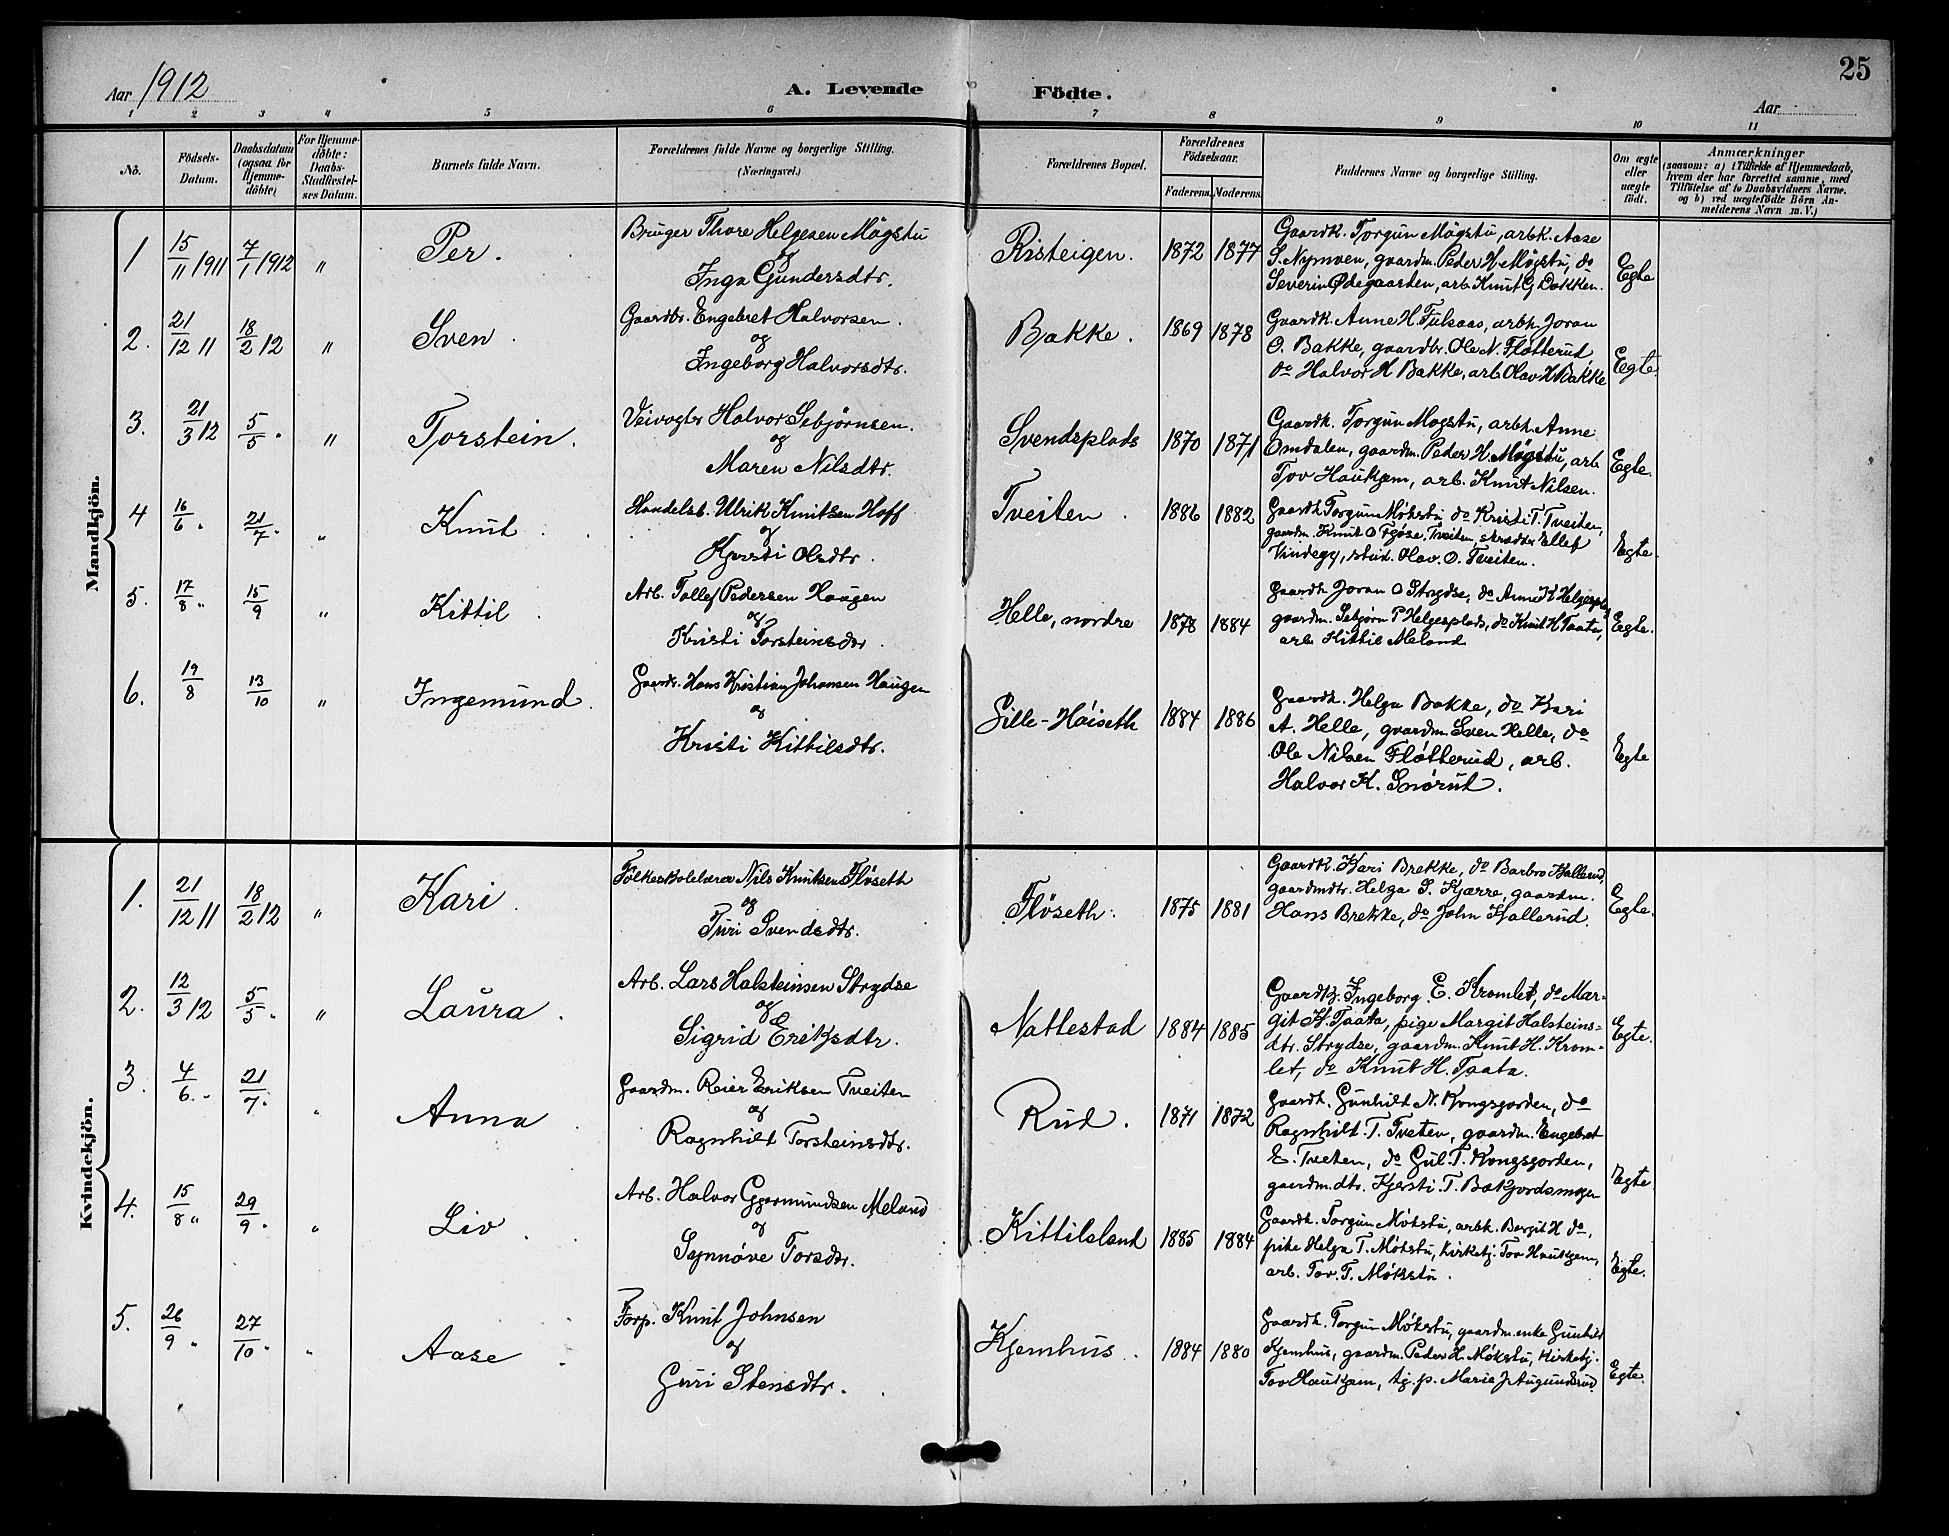 25
Aar 1912
A. Levende Födte.
Aar
1 2 3 4 5 6 7 8 9 10 11
No.
Födsels-Datum.
Daabsdatum (ogsaa for Hjemme-döbte)
For Hjemme-döbte: Daabs-Stadfæstel-ses Datum.
Barnets fulde Navn.
Forældrenes fulde Navne og borgerlige Stilling. (Næringsvei.)
Forældrenes Bopæl.
Forældrenes Födselsaar.
Faderens. Moderens.
Faddernes Navne og borgerlige Stilling.
Om ægte eller uægte födt.
Anmærkninger
(saasom: a) i Tilfælde af Hjemmedaab, hvem der har forrettet samme, med Tilföielse af to Daabsvidners Navne. og b) ved uægtefödte Börn An-melderens Navn m. V.)
Mandkjön.
1 15/11 1911 7/1 1912 " Per.
Bruger Thore Helgesen Møgstu
og
Inga Gundersdtr.
Risteigen. 1872 1877
Gaardk. Torgun Møgstu, arbk. Aase
S. Nymoen, gaardm. Peder H. Møgstu, do
Severin Ødegaarden, arb. Knut G Dokken.
Egte
2. 21/12 11 18/2 12 " Sven.
Gaardbr. Engebret Halvorsen.
og
Ingeborg Halvorsdtr.
Bakke. 1869 1878
Gaardk. Anne H. Fulsaas, arbk. Joran
O. Bakke, gaardbr. Ole N. Fløtterud,
do Halvor H Bakke, arb. Olav H Bakke
Egte.
3. 21/3 12 5/5 " " Torstein.
Veivogter Halvor Sebjørnsen.
og
Maren Nilsdtr.
Svendsplads 1870 1871
Gaardk. Torgun Mogstu, arbk. Anne
Omdalen, gaardm. Peder H. Møgstu, arb
Tov Haukjem, arb. Knut Nilsen.
Egte.
4 16/6 " 21/7 " " Knut.
Handelsb. Ulrik Knutsen Hoff
og
Kjersti Olsdtr.
Tveiten. 1886 1882
Gaardk Torgun Møkstu do Kristi T. Tveiten,
gaardm. Knut O Tveiten, skrædder Ellef
Vindegg, stud. Olav. O. Tveiten.
Egte.
5. 17/8 " 15/9 " Kittil.
Arb. Tollef Pedersen Haugen
og
Kristi Torsteinsdtr.
Helle, nordre 1878 1884
Gaardk Joran O Strydse, do Anne K Helgesplads
gaardm. Sebjørn P Helgesplads, do Knut H Taata,
arb Kittil Meland
Egte.
6. 19/8 13/10 " Ingemund.
Gaardbr. Hans Kristian Johansen Haugen
og
Kristi Kittilsdtr.
Gille-Høiseth 1884 1886
Gaardk. Helga Bakke, do Kari
A. Helle, gaardm. Sven Helle, do
Ole Nilsen Fløtterud, arb.
Halvor K. Snørut.
Egte
Kvindekjön.
1. 21/12 11 18/2 12 " Kari.
Folkeskolelærer Nils Knutsen Fløseth
og
Turi Svendsdtr.
Fløseth. 1875 1881
Gaardk. Kari Brekke, do Barbro Kjallerud,
gaardmdtr. Helga S. Kjærre, gaardm.
Hans Brekke, do John Kjallerud.
Egte.
2. 12/3 12 5/5 " " Laura.
Arb. Lars Halsteinsen Strydse
og
Sigrid Eriksdtr.
Nattestad 1884 1885
Gaardk. Ingeborg E. Kromlet, do Mar-
git H. Taata, pige Margit Halsteins-
dtr. Strydse, gaardm. Knut H. Krom-
let, do Knut H. Taata.
Egte.
3. 4/6 " 21/7 " " Anna
Gaardm. Reier Eriksen Tveiten
og
Ragnhilt Torsteinsdtr.
Rud. 1871 1872
Gaardk. Gunhilt N. Kongsgorden, do
Ragnhilt. T. Tveten, gaardm. Engebret
E. Tveten, do Gul. T. Kongsgorden,
gaardm.dtr. Kjersti. T. Bakjordsmogen
Egte.
4. 15/8 " 29/9 " " Liv.
Arb. Halvor Gjermundsen Meland
og
Synnøve Torsdtr.
Kittilsland 1885 1884
Gaardk. Torgun Møkstu, arbk. Bergit H do,
pike Helga T. Møkstu, kirketj. Tov Haukjem,
arb. Tov. T. Møkstu.
Egte.
5. 26/9 " 27/10 " " Aase.
Forp. Knut Johnsen
og
Guri Stensdtr.
Kjemhus. 1884 1880
Gaardk. Torgun Møkstu, gaardm.enke Gunhild
Kjemhus, gaardm. Peder H. Møkstu, kirketj.
Tov Haukjem, tj. p. Marie J Augundsrud
Egte.